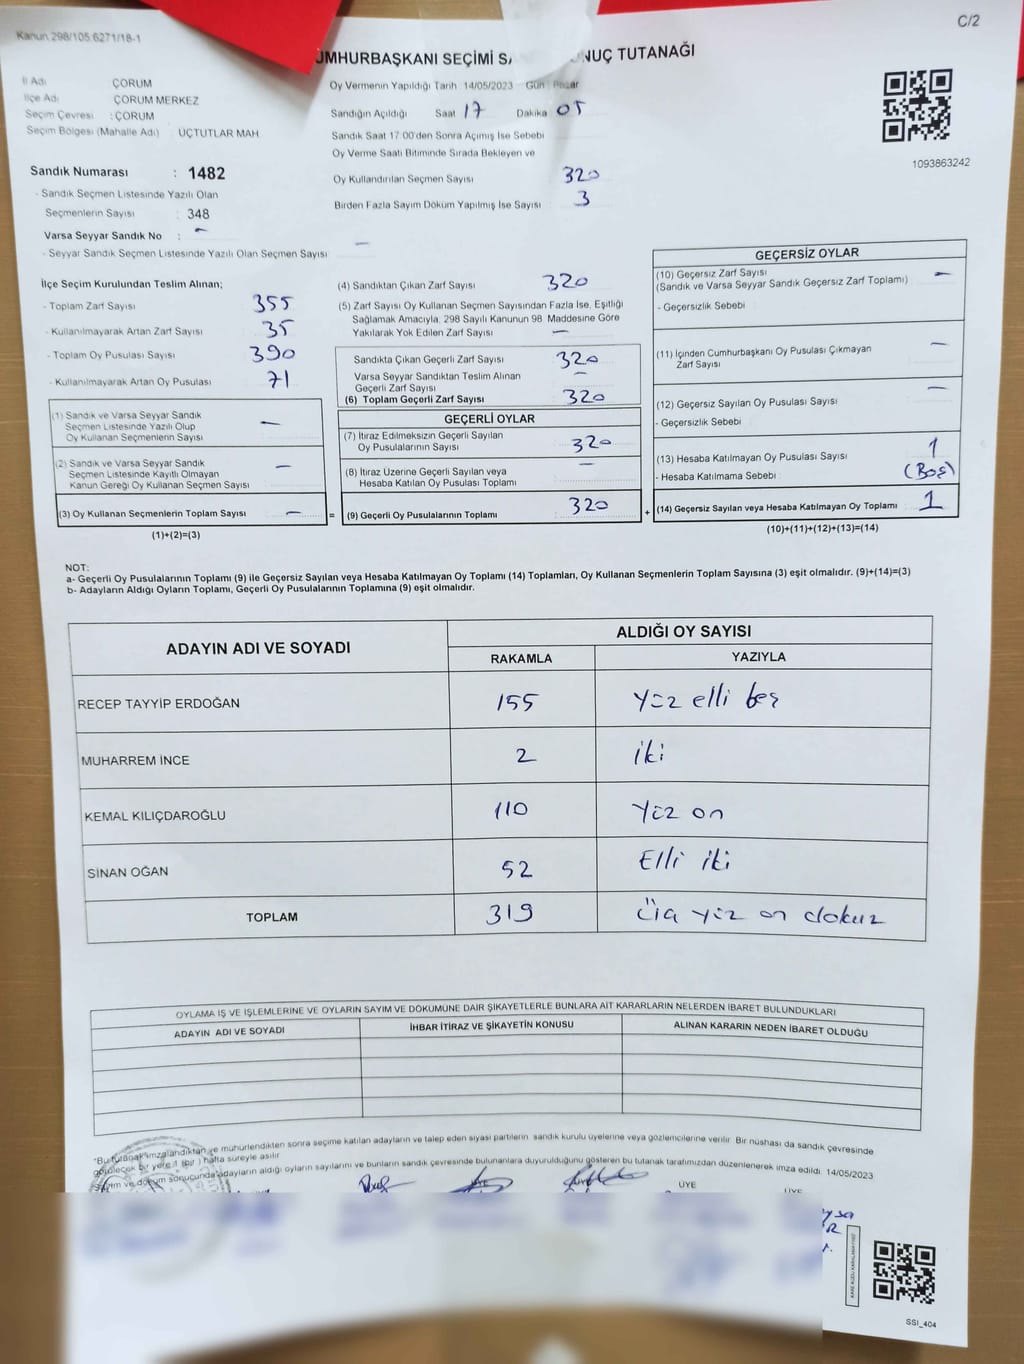 Kanun.298/105 6271/18-1
C/2
UMHURBAŞKANI SEÇİMİ SA NUÇ TUTANAĞI
İl Adı ÇORUM
İlçe Adı ÇORUM MERKEZ
Seçim Çevresi : ÇORUM
Seçim Bölgesi (Mahalle Adı) ÜÇTUTLAR MAH.
Sandık Numarası : 1482
- Sandık Seçmen Listesinde Yazılı Olan
Seçmenlerin Sayısı : 348
Varsa Seyyar Sandık No : -
- Seyyar Sandık Seçmen Listesinde Yazılı Olan Seçmen Sayısı -
Oy Vermenin Yapıldığı Tarih 14/05/2023 Gün : Pazar
Sandığın Açıldığı Saat 17 Dakika 05
Sandık Saat 17:00'den Sonra Açımış İse Sebebi
Oy Verme Saati Bitiminde Sırada Bekleyen ve
Oy Kullandırılan Seçmen Sayısı 320
Birden Fazla Sayım Döküm Yapılmış İse Sayısı 3
1093863242
İlçe Seçim Kurulundan Teslim Alınan;
- Toplam Zarf Sayısı 355
- Kullanılmayarak Artan Zarf Sayısı 35
- Toplam Oy Pusulası Sayısı 390
- Kullanılmayarak Artan Oy Pusulası 71
(1) Sandık ve Varsa Seyyar Sandık
Seçmen Listesinde Yazılı Olup
Oy Kullanan Seçmenlerin Sayısı -
(2) Sandık ve Varsa Seyyar Sandık
Seçmen Listesinde Kayıtlı Olmayan
Kanun Gereği Oy Kullanan Seçmen Sayısı -
(3) Oy Kullanan Seçmenlerin Toplam Sayısı - =
(1)+(2)=(3)
(4) Sandıktan Çıkan Zarf Sayısı 320
(5) Zarf Sayısı Oy Kullanan Seçmen Sayısından Fazla İse, Eşitliği
Sağlamak Amacıyla, 298 Sayılı Kanunun 98. Maddesine Göre
Yakılarak Yok Edilen Zarf Sayısı -
Sandıkta Çıkan Geçerli Zarf Sayısı 320
Varsa Seyyar Sandıktan Teslim Alınan
Geçerli Zarf Sayısı -
(6) Toplam Geçerli Zarf Sayısı 320
GEÇERLİ OYLAR
(7) İtiraz Edilmeksizin Geçerli Sayılan
Oy Pusulalarının Sayısı 320
(8) İtiraz Üzerine Geçerli Sayılan veya
Hesaba Katılan Oy Pusulası Toplamı -
(9) Geçerli Oy Pusulalarının Toplamı 320 +
GEÇERSİZ OYLAR
(10) Geçersiz Zarf Sayısı
(Sandık ve Varsa Seyyar Sandık Geçersiz Zarf Toplamı) -
- Geçersizlik Sebebi
(11) İçinden Cumhurbaşkanı Oy Pusulası Çıkmayan
Zarf Sayısı -
(12) Geçersiz Sayılan Oy Pusulası Sayısı -
- Geçersizlik Sebebi
(13) Hesaba Katılmayan Oy Pusulası Sayısı 1
- Hesaba Katılmama Sebebi : (Boş)
(14) Geçersiz Sayılan veya Hesaba Katılmayan Oy Toplamı 1
(10)+(11)+(12)+(13)=(14)
NOT:
a- Geçerli Oy Pusulalarının Toplamı (9) ile Geçersiz Sayılan veya Hesaba Katılmayan Oy Toplamı (14) Toplamları, Oy Kullanan Seçmenlerin Toplam Sayısına (3) eşit olmalıdır. (9)+(14)=(3)
b- Adayların Aldığı Oyların Toplamı, Geçerli Oy Pusulalarının Toplamına (9) eşit olmalıdır.
ADAYIN ADI VE SOYADI ALDIĞI OY SAYISI
RAKAMLA YAZIYLA
RECEP TAYYİP ERDOĞAN 155 Yüz elli beş
MUHARREM İNCE 2 iki
KEMAL KILIÇDAROĞLU 110 Yüz on
SİNAN OĞAN 52 Elli iki
TOPLAM 319 Üç yüz on dokuz
OYLAMA İŞ VE İŞLEMLERİNE VE OYLARIN SAYIM VE DÖKÜMÜNE DAİR ŞİKAYETLERLE BUNLARA AİT KARARLARIN NELERDEN İBARET BULUNDUKLARI
ADAYIN ADI VE SOYADI İHBAR İTİRAZ VE ŞİKAYETİN KONUSU ALINAN KARARIN NEDEN İBARET OLDUĞU
"Bu tutanak imzalandıktan ve mühürlendikten sonra seçime katılan adayların ve talep eden siyasi partilerin sandık kurulu üyelerine veya gözlemcilerine verilir. Bir nüshası da sandık çevresinde
görülecek bir yere 1 (bir) hafta süreyle asılır
Sayım ve döküm sonucunda adayların aldığı oyların sayılarını ve bunların sandık çevresinde bulunanlara duyurulduğunu gösteren bu tutanak tarafımızdan düzenlenerek imza edildi. 14/05/2023
ÜYE ÜYE
SSI_404